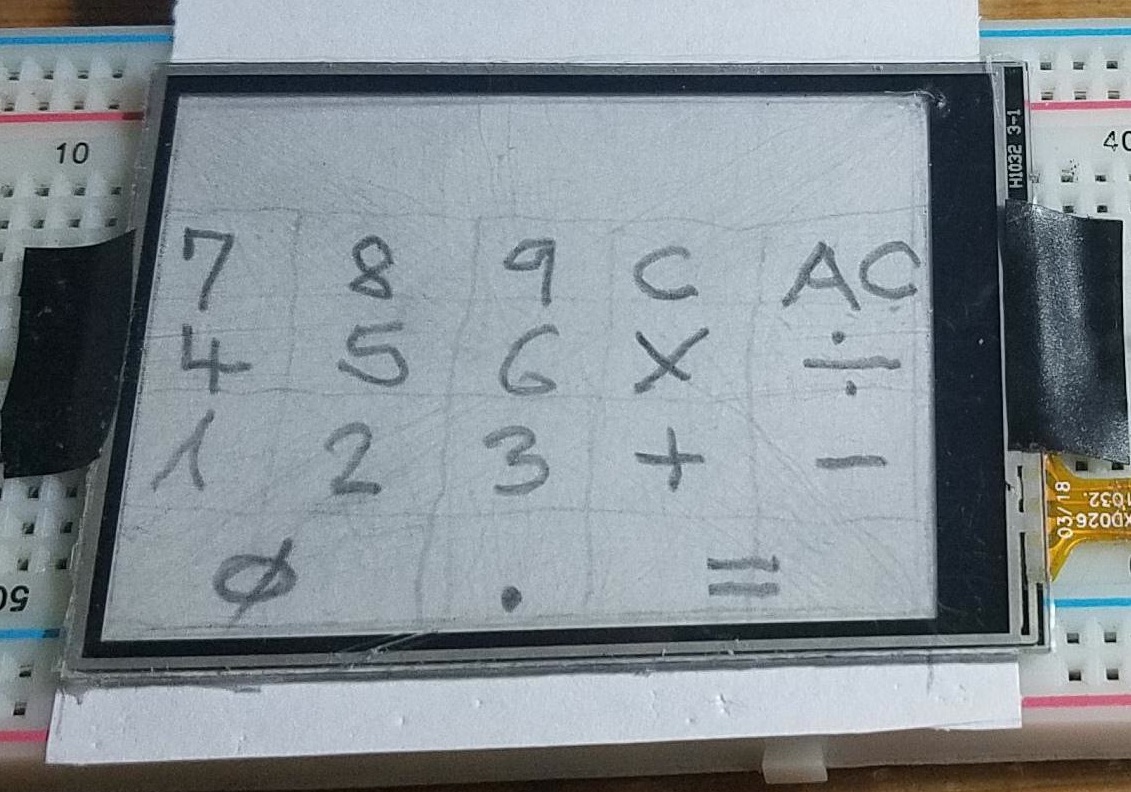 10
40
H1032 3-1
7 8 9 C AC
4 5 6 X ÷
1 2 3 + −
Ø . =
03/18
XD026
1032.
50